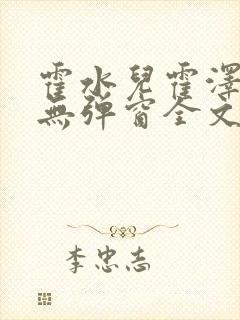 霍水兒霍澤
無彈窗全文
李忠志